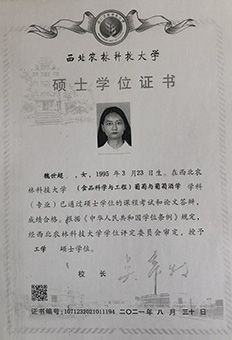 西北农林科技大学
硕士学位证书
魏世超 ,女,1995年3月23日生。在西北农
林科技大学 (食品科学与工程)葡萄与葡萄酒学 学科
(专业)已通过硕士学位的课程考试和论文答辩,
成绩合格。根据《中华人民共和国学位条例》规定,
经西北农林科技大学学位评定委员会审定,授予
工学 硕士学位。
校 长
证书编号:1071232021011194 二〇二一年 八 月 三十 日